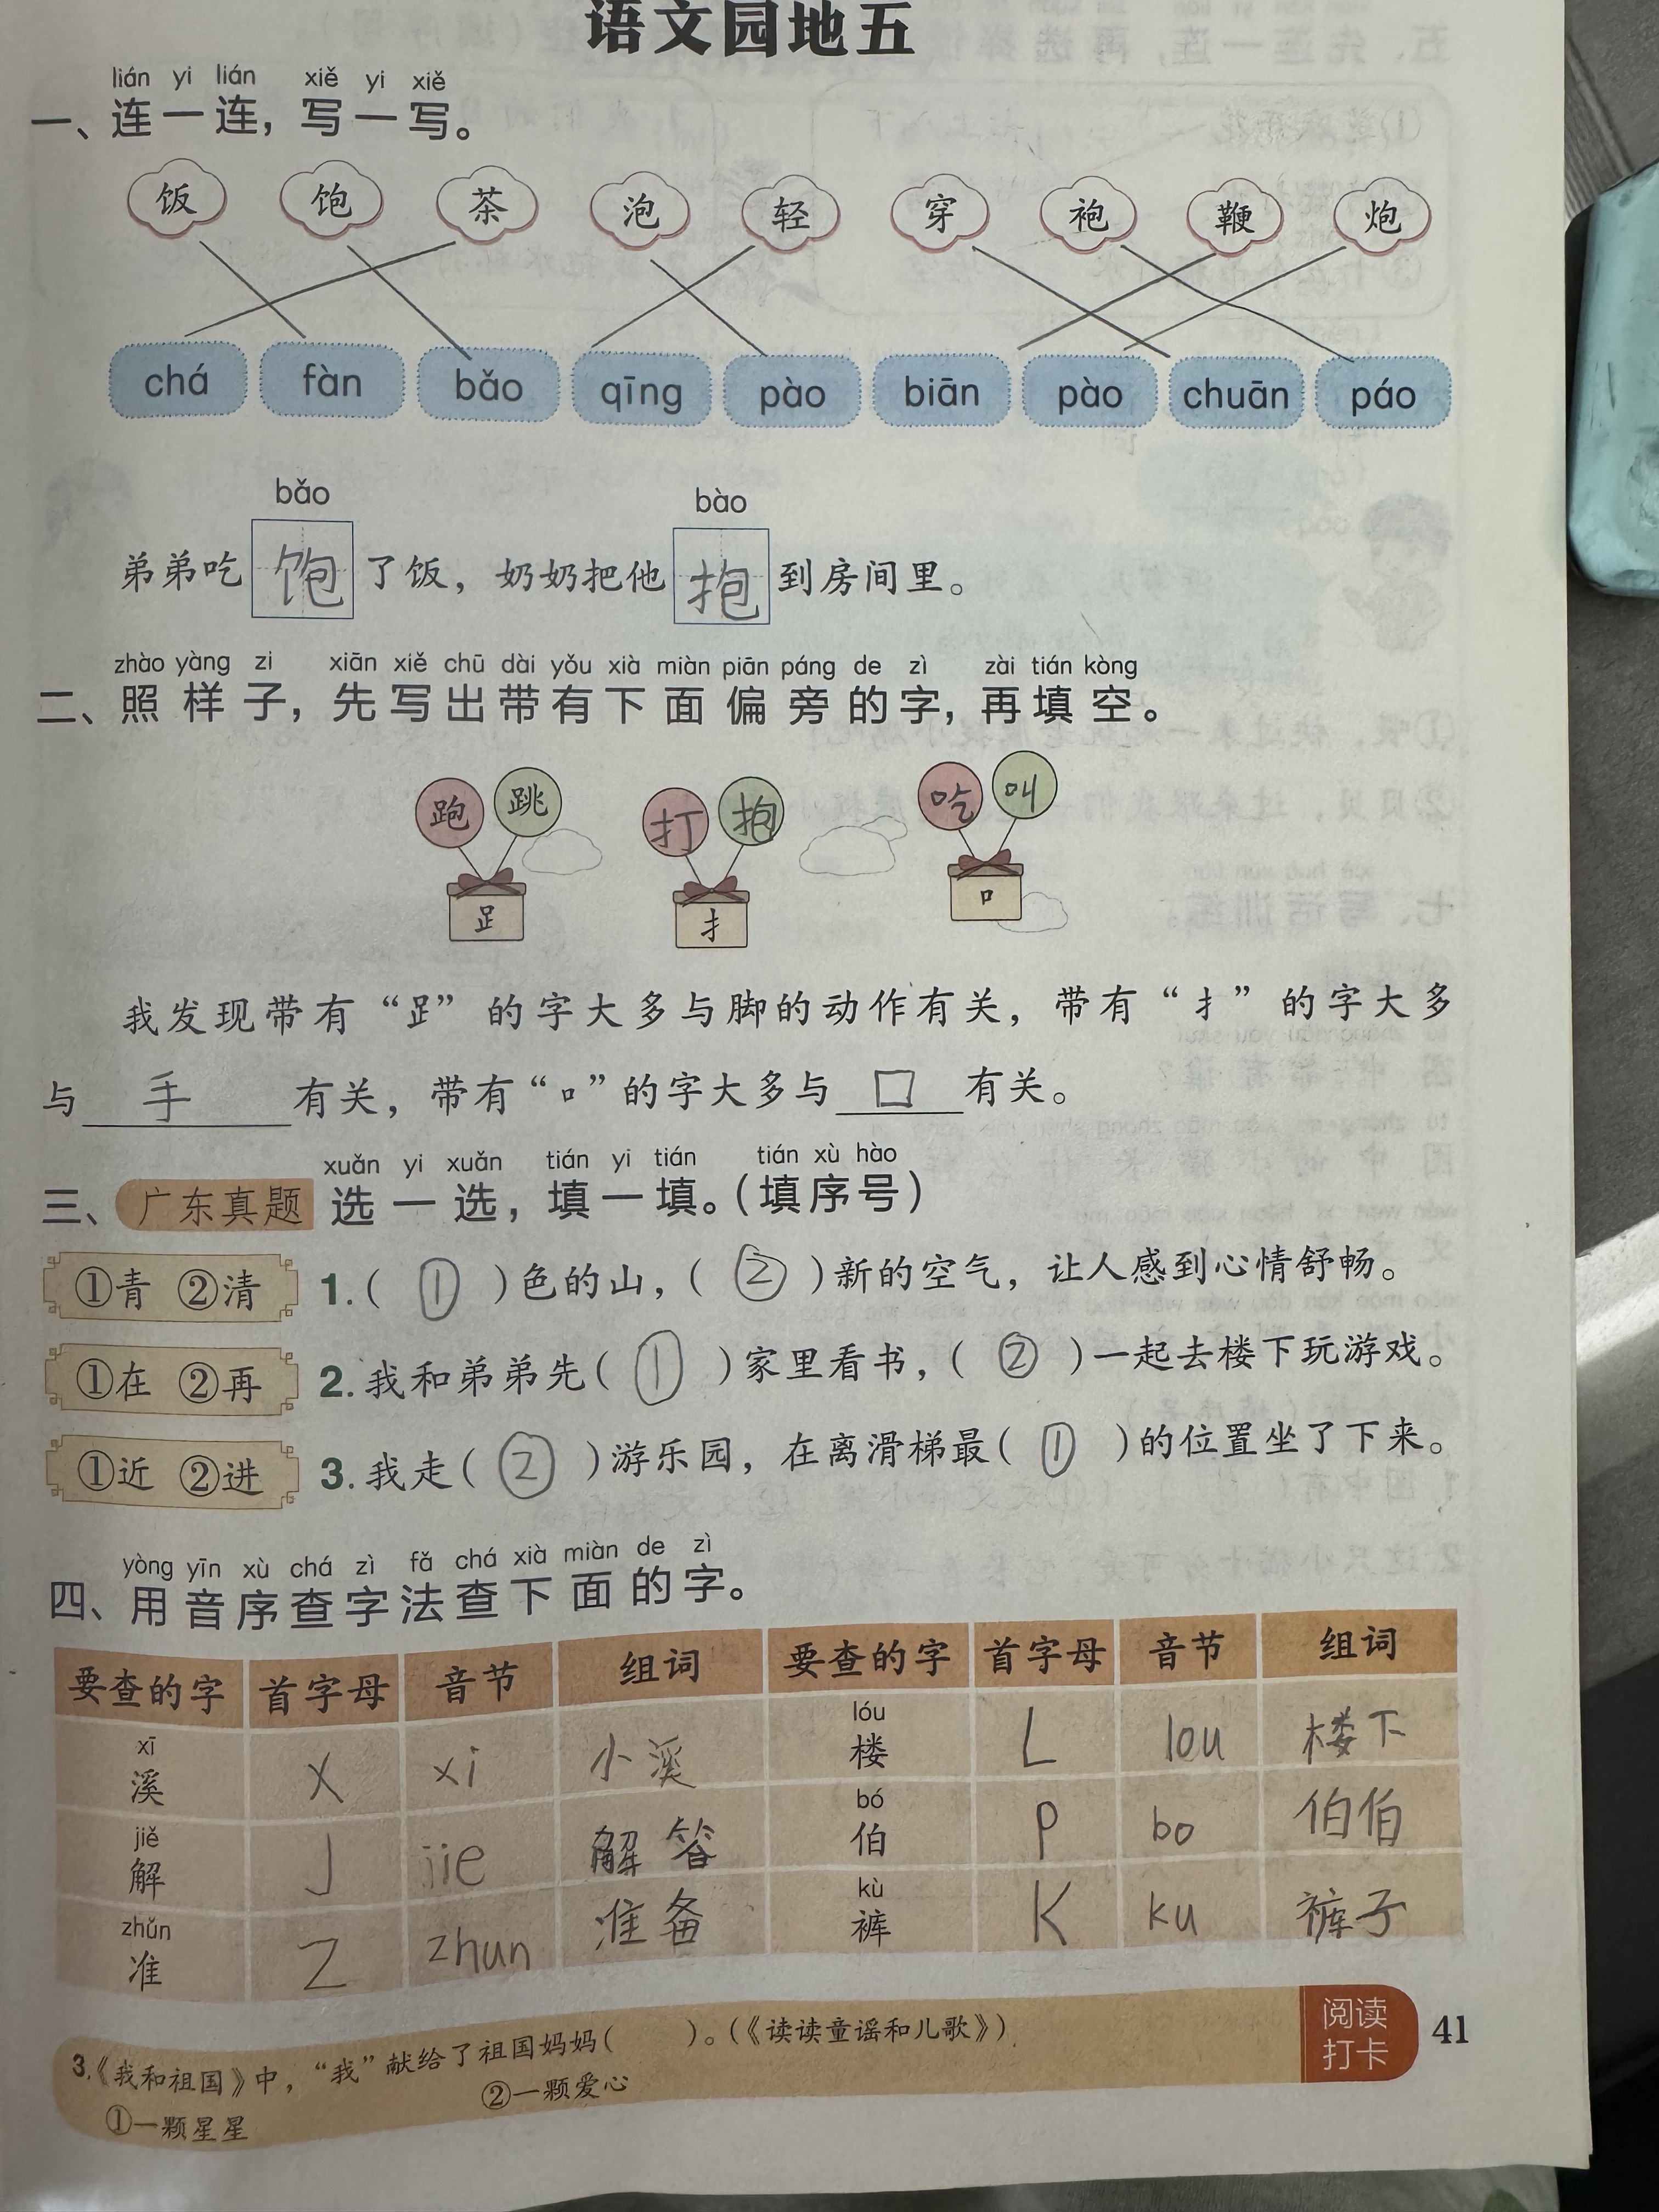 语文园地五
lián yi lián xiě yi xiě
一、连一连，写一写。
饭 饱 茶 泡 轻 穿 袍 鞭 炮
chá fàn bǎo qīng pào biān pào chuān páo
bǎo bào
弟弟吃饱了饭，奶奶把他抱到房间里。
zhào yàng zi xiān xiě chū dài yǒu xià miàn piān páng de zì zài tián kòng
二、照样子，先写出带有下面偏旁的字，再填空。
跑 跳 打 抱 吃 叫
⻊ 扌 口
我发现带有“⻊”的字大多与脚的动作有关，带有“扌”的字大多
与手有关，带有“口”的字大多与口有关。
xuǎn yi xuǎn tián yi tián tián xù hào
三、广东真题 选一选，填一填。（填序号）
①青 ②清 1.（ ① ）色的山，（ ② ）新的空气，让人感到心情舒畅。
①在 ②再 2.我和弟弟先（ ① ）家里看书，（ ② ）一起去楼下玩游戏。
①近 ②进 3.我走（ ② ）游乐园，在离滑梯最（ ① ）的位置坐了下来。
yòng yīn xù chá zì fǎ chá xià miàn de zì
四、用音序查字法查下面的字。
要查的字 首字母 音节 组词 要查的字 首字母 音节 组词
xī lóu
溪 X xi 小溪 楼 L lou 楼下
jiě bó
解 J jie 解答 伯 P bo 伯伯
zhǔn kù
准 Z zhun 准备 裤 K ku 裤子
3.《我和祖国》中，“我”献给了祖国妈妈（ ）。（《读读童谣和儿歌》）
①一颗星星 ②一颗爱心
阅读
打卡
41